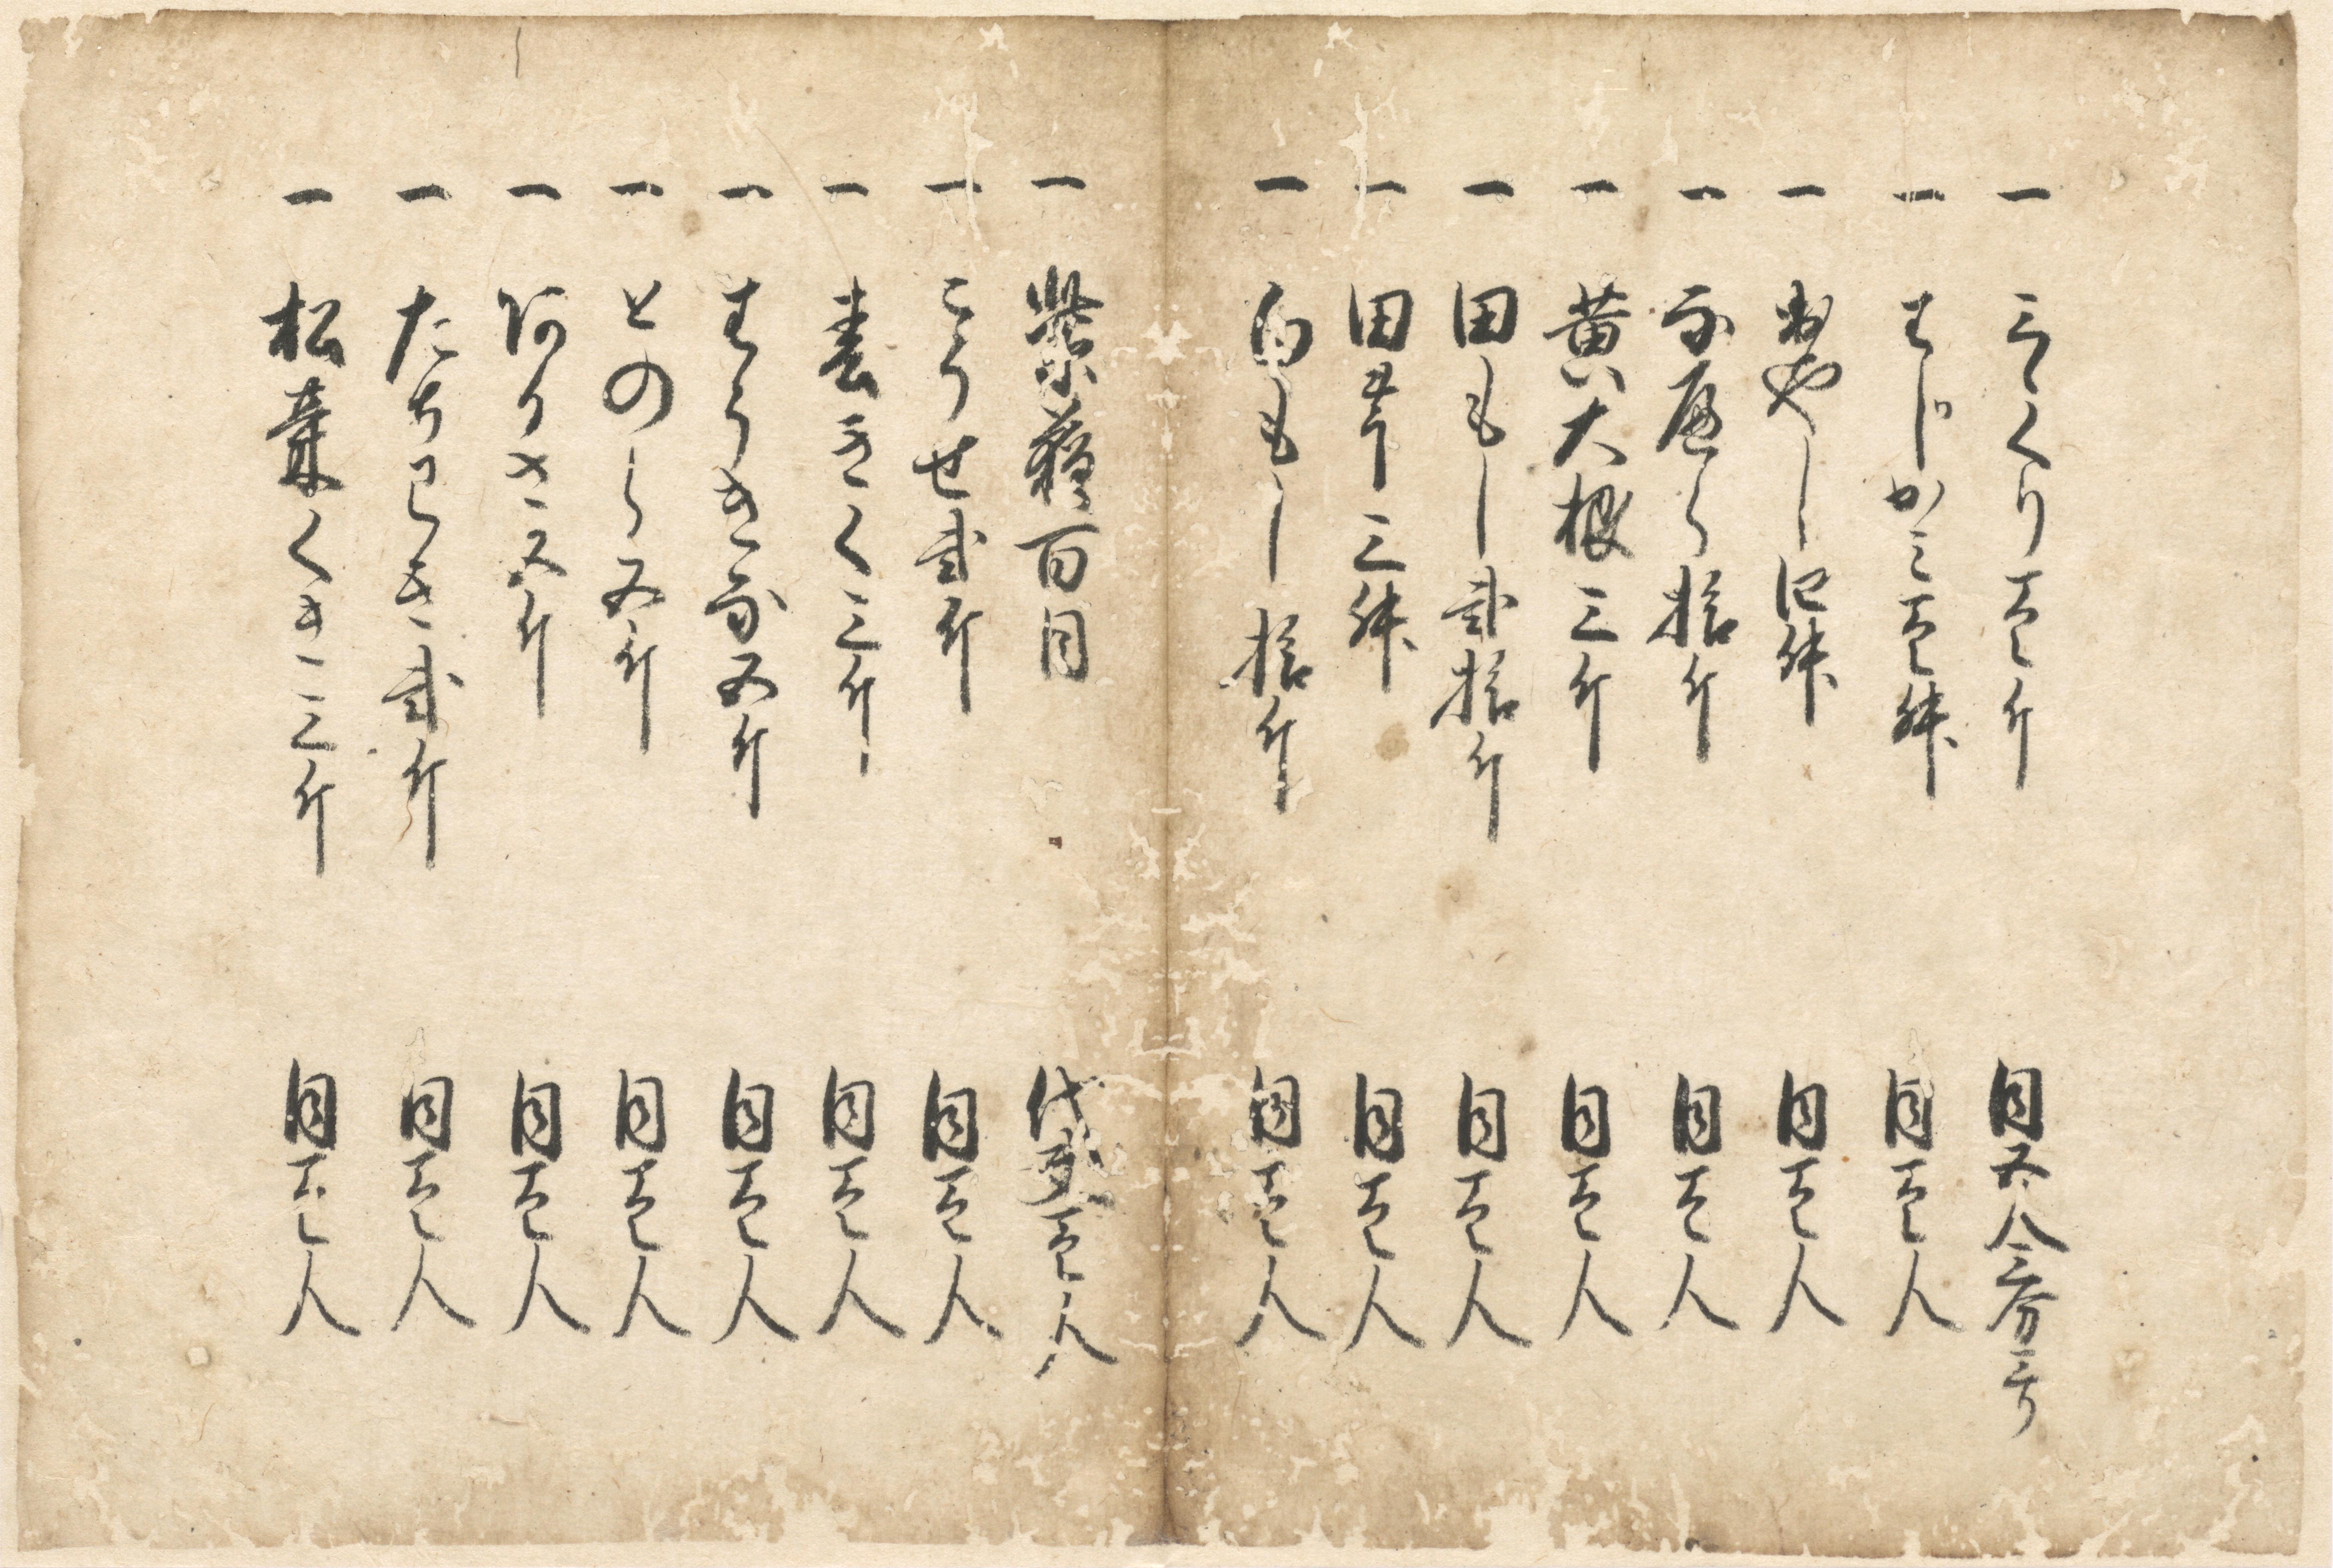 一 三くり壱斤 同五人三分三り
一 はしかみ壱舛 同壱人
一 もやし四舛 同壱人
一 拾斤 同壱人
一 黄大根三斤 同壱人
一 田もし弐拾斤 同壱人
一 田芋三舛 同壱人
一 白もし拾斤 同壱人
一 紫蘇百目 代夫壱人
一 こりせ弐斤 同壱人
一 春きく三斤 同壱人
一 五斤 同壱人
一 とのし五斤 同壱人
一 阿りさ五斤 同壱人
一 たちわき弐斤 同壱人
一 松葉くき三斤 同壱人